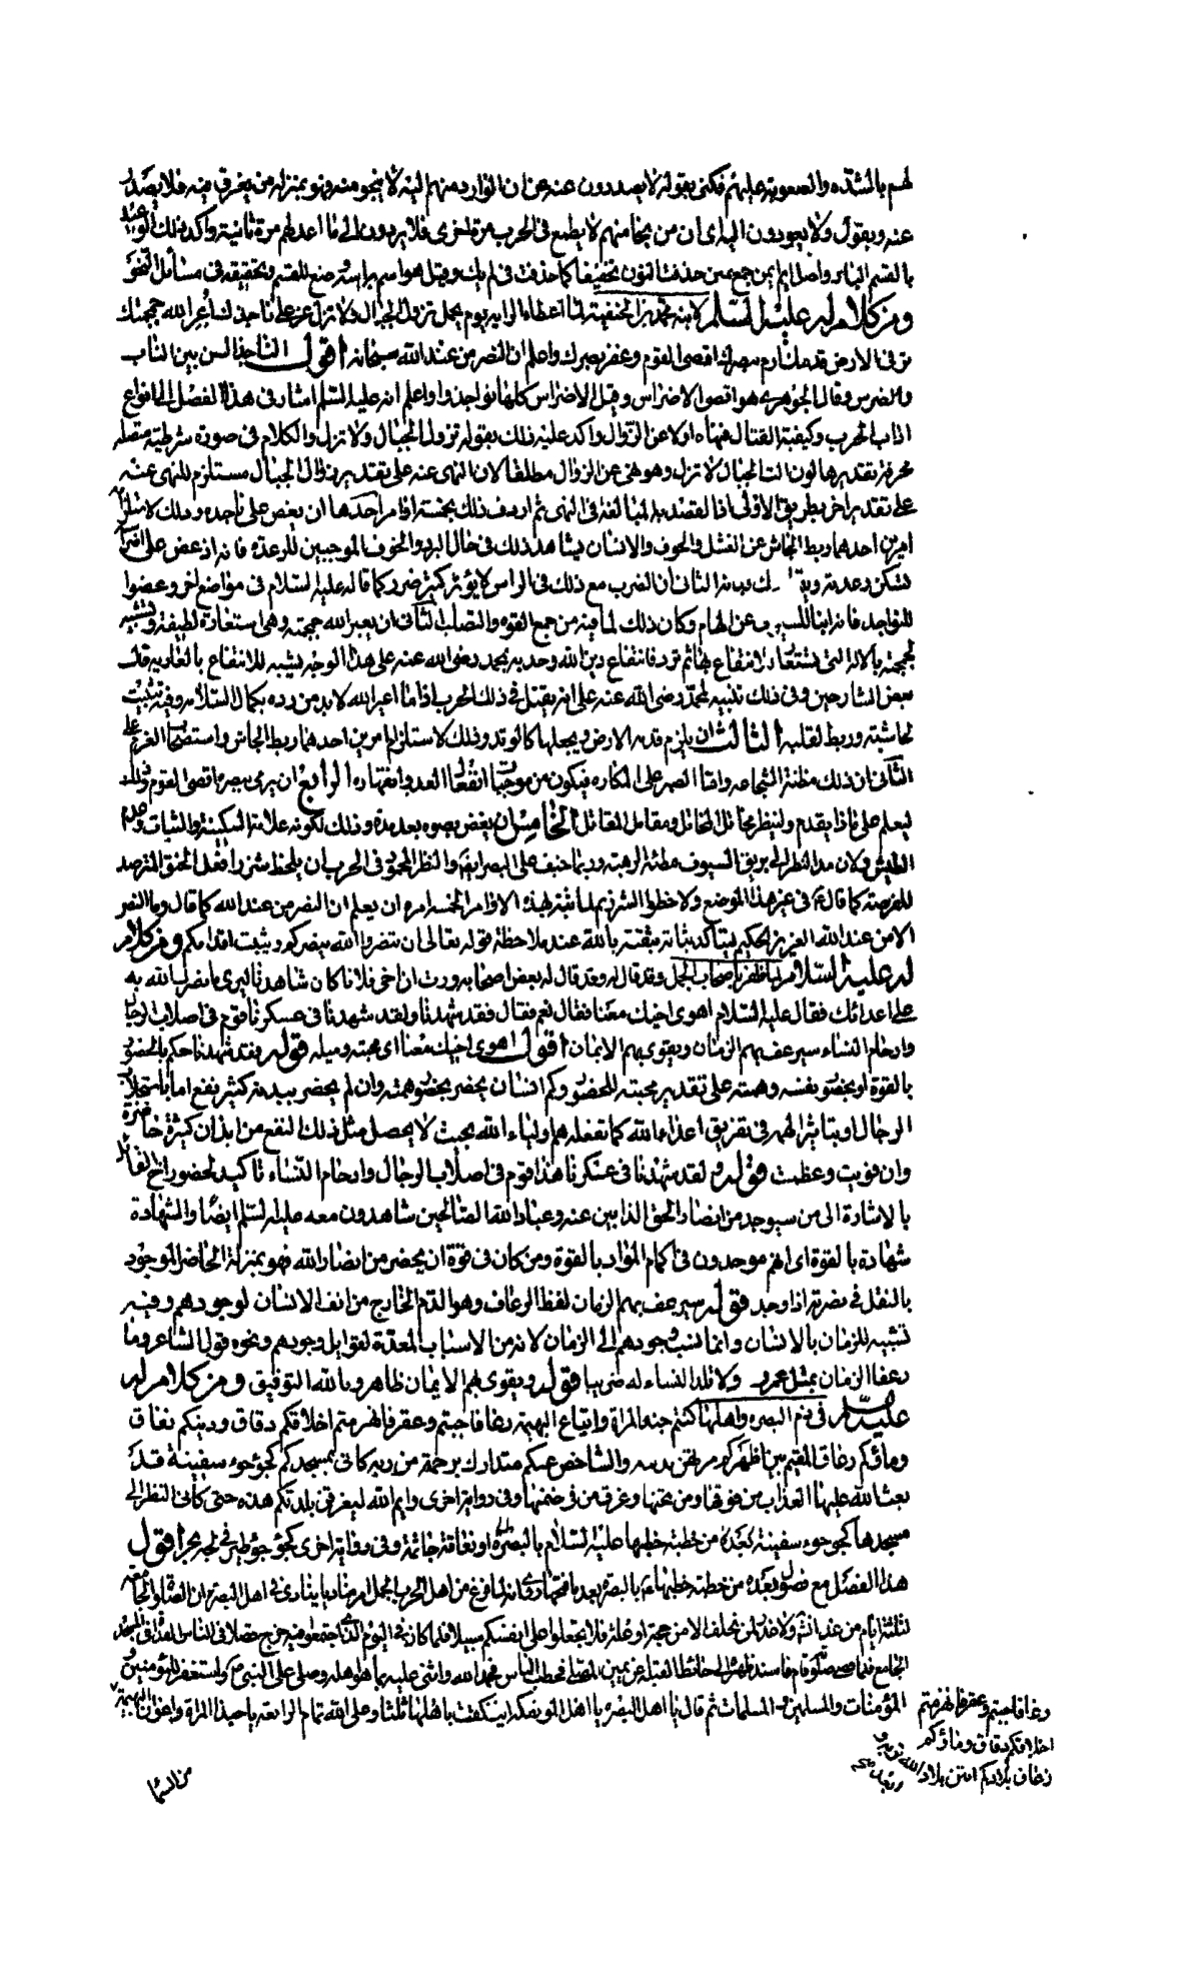 لهم بالشدة والصعوبة عليهم فكنى بقوله لا يصدرون عنه عن ان الوارد منهم اليه لا ينجو منه وهو بمنزلة من يغرق فيه فلا يصدر
عنه وبقوله ولا يعودون اليه اى ان من نجا منهم لا يطمع فى الحرب مرة اخرى فلا يردون الى ما اعد لهم مرة ثانية واكد ذلك الوعيد
بالقسم البار واصل ايم ايمن جمع يمين حذفت النون تخفيفا كما حذفت فى لم يك وقيل هو اسم براسه وضع للقسم وتحقيقه فى مسائل النحو
ومن كلام له عليه السلم لابنه محمد بن الحنفية لما اعطاه الراية يوم الجمل تزول الجبال ولا تزل عض على ناجذك أعر الله جمجمتك
تد فى الارض قدمك ارم ببصرك اقصى القوم وغض بصرك واعلم ان النصر من عند الله سبحانه اقول الناجذ السن بين الناب
والضرس وقال الجوهرى هو اقصى الاضراس وقيل الاضراس كلها نواجذ واعلم انه عليه السلم اشار فى هذا الفصل الى انواع
اداب الحرب وكيفية القتال فنهاه اولا عن الزوال واكد عليه ذلك بقوله تزول الجبال ولا تزل والكلام فى صورة شرطية متصلة
محرفة تقديرها لو زالت الجبال لا تزل وهو نهى عن الزوال مطلقا لان النهى عنه على تقدير زوال الجبال مستلزم للنهى عنه
على تقدير اخر بطريق الاولى اذ القصد به المبالغة فى النهى ثم اردف ذلك بخمسة اوامر احدها ان يعض على ناجذه وذلك لاستلزامه
امرين احدهما ربط الجاش عن الفشل والخوف والانسان يشاهد ذلك فى حال البرد والخوف الموجبين للرعدة فانه اذ عض على اضراسه
تسكن رعدته الثانى ان الضرب مع ذلك فى الراس لا يؤثر كثير ضرر كما قاله عليه السلام فى مواضع اخر وعضوا
للنواجذ فانه انبا للسيوف عن الهام وكان ذلك لما فيه من جمع القوة والتصلب الثانى ان يعير الله جمجمته وهى استعارة لطيفة وتشبيه
لجمجمته بالالة التى تستعار للانتفاع بها ثم ترد فانتفاع دين الله وحزبه بمحمد رضى الله عنه على هذا الوجه يشبه للانتفاع بالعارية قال
بعض الشارحين وفى ذلك تنبيه لمحمد رضى الله عنه على انه لم يقتل فى ذلك الحرب اذ ما اعير الله لا بد من رده بكمال السلامة وفيه تثبيت
لجاشه وربط لقلبه الثالث ان يلزم قدمه الارض ويجعلها كالوتد وذلك لاستلزام امرين احدهما ربط الجاش واستصحاب العزم على
الثانى ان ذلك مظنة الشجاعة واما الصبر على المكاره فيكون من موجبات انفعال العدو وانقهاره الرابع ان يرمى ببصره اقصى القوم وذلك
ليعلم على ماذا يقدم ولينظر مخاتل المخاتل ومقاتل المقاتل الخامس ان يغض بصره بعد مده وذلك لكونه علامة السكينة والثبات وعدم
الطيش ولان مد النظر الى بريق السيوف مظنة الرهبة وربما خيف على البصر ايضا والنظر المحمود فى الحرب ان يلحظ شزرا فعل الحنق المترصد
للفرصة كما قال فى غير هذا الموضع ولاحظوا الشزر ثم لما نبه لهذه الاوامر الخمسة امره ان يعلم ان النصر من عند الله كما قال وما النصر
الا من عند الله العزيز الحكيم ليتاكد ثباته بثقته بالله عند ملاحظة قوله تعالى ان تنصروا الله ينصركم ويثبت اقدامكم ومن كلام
له عليه السلام لما ظفر باصحاب الجمل وقد قال له بعض اصحابه وددت ان اخى فلانا كان شاهدنا ليرى ما نصرك الله به
على اعدائك فقال عليه السلام اهوى اخيك معنا فقال نعم فقال فقد شهدنا ولقد شهدنا فى عسكرنا قوم فى اصلاب الرجال
وارحام النساء سيرعف بهم الزمان ويقوى بهم الايمان اقول اهوى اخيك معنا اى محبته وميله قوله فقد شهدنا حكم بالحضور
بالقوة او بحضور نفسه وهمته على تقدير محبته للحضور وكم انسان يحضر بحضور همته وان لم يحضر ببدنه كثير نفع اما باستجلاب
الرجال او بتاثير الهمة فى تفريق اعداء الله كما تفعله همم اولياء الله بحيث لا يحصل مثل ذلك النفع من ابدان كثيرة حاضرة
وان قويت وعظمت قوله ولقد شهدنا فى عسكرنا هذا قوم فى اصلاب الرجال وارحام النساء تاكيد لحضور اخ القائل
بالاشارة الى من سيوجد من انصار الحق الذابين عنه وعباد الله الصالحين شاهدون معه عليه السلم ايضا والشهادة
شهادة بالقوة اى انهم موجودون فى اكمام المواد بالقوة ومن كان فى قوة ان يحضر من انصار الله فهو بمنزلة الحاضر الموجود
بالفعل فى نصرته اذا وجد قوله سيرعف بهم الزمان لفظ الرعاف وهو الدم الخارج من انف الانسان لوجودهم وفيه
تشبيه للزمان بالانسان وانما نسب وجودهم الى الزمان لانه من الاسباب المعدة لقوابل وجودهم ونحوه قول الشاعر وما
رعف الزمان بمثل عمرو ولا تلد النساء له ضريبا قوله ويقوى بهم الايمان ظاهر وبالله التوفيق ومن كلام له
عليه السلم فى ذم البصرة واهلها كنتم جند المراة واتباع البهيمة رغا فاجبتم وعقر فانهزمتم اخلاقكم دقاق ودينكم نفاق
وماؤكم زعاق المقيم بين اظهركم مرتهن بذنبه والشاخص عنكم متدارك برحمة من ربه كانى بمسجدكم كجؤجؤ سفينة قد
بعث الله عليها العذاب من فوقها ومن تحتها وغرق من فى ضمنها وفى رواية اخرى وايم الله ليغرقن بلدتكم هذه حتى كانى انظر الى
مسجدها كجؤجؤ سفينة او نعامة جاثمة وفى رواية اخرى كجؤجؤ طير فى لجة بحر اقول
هذا الفصل مع فصول بعده من خطبة خطبها بالبصرة بعد ما فتحها روى انه لما فرغ من اهل الحرب الجمل امر مناديا ينادى فى اهل البصرة ان الصلوة الجامعة
لثلثة ايام من غد انشا الله ولا عذر لمن تخلف الا من حجة او علة فلا تجعلوا على انفسكم سبيلا فلما كان فى اليوم الذى اجتمعوا فيه خرج فصلى فى الناس الغداة فى المسجد
الجامع فلما قضى صلوته قام فاسند ظهره الى حائط القبلة عن يمين المصلى فخطب الناس فحمد الله واثنى عليه بما هو اهله وصلى على النبى واستغفر للمؤمنين و
المؤمنات والمسلمين والمسلمات ثم قال يا اهل البصرة يا اهل المؤتفكة ائتفكت باهلها ثلثا وعلى الله تمام الرابعة يا جند المراة واعوان البهيمة
رغا فاجبتم وعقر فانهزمتم
اخلاقكم دقاق وماؤكم
زعاق بلادكم انتن بلاد الله تربة و
من السما